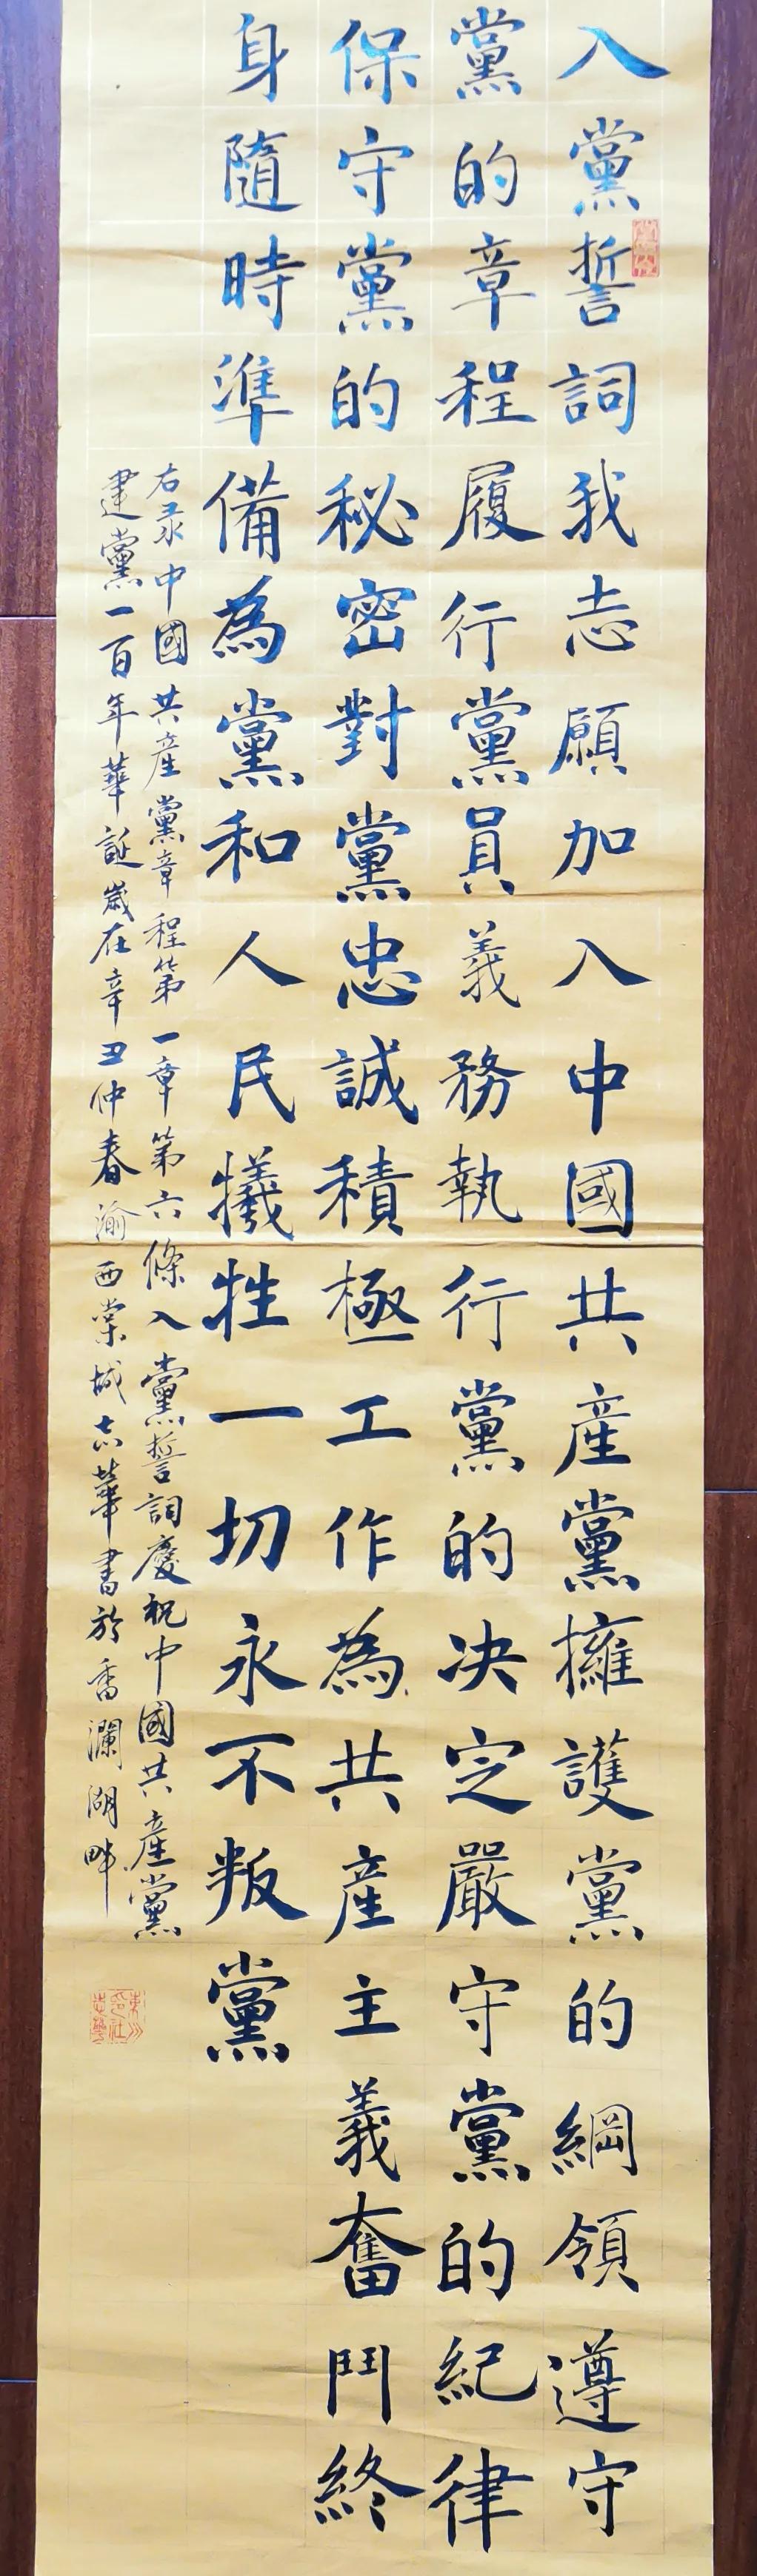 入黨誓詞我志願加入中國共産黨擁護黨的綱領遵守
黨的章程履行黨員義務執行黨的决定嚴守黨的紀律
保守黨的秘密對黨忠誠積極工作為共産主義奮鬥終
身隨時準備為黨和人民犧牲一切永不叛黨
右录中國共産黨章程第一章第六條入黨誓詞慶祝中國共産黨
建黨一百年華誕歲在辛丑仲春渝西棠城志華書於香瀾湖畔